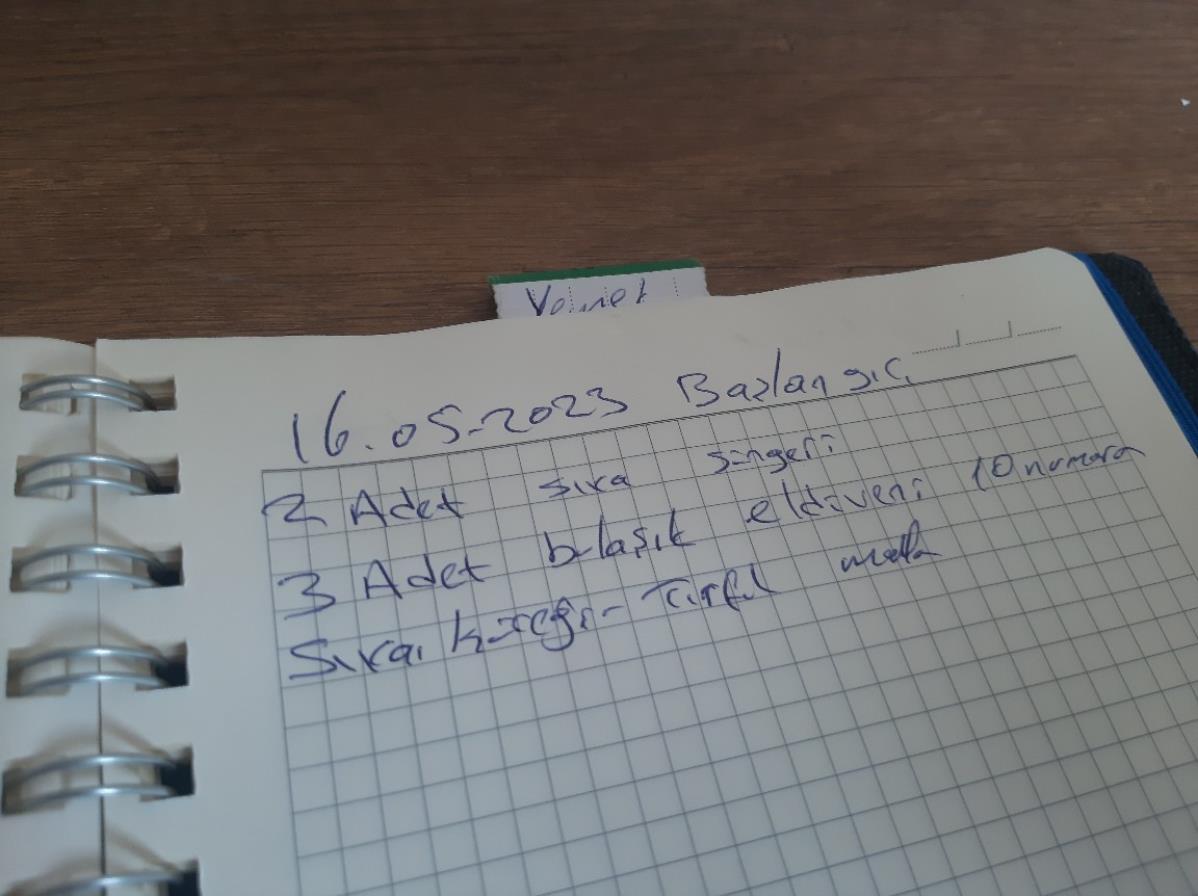 16.05.2023 Başlangıç
2 Adet sıva süngeri
3 Adet bulaşık eldiveni 10 numara
Sıva küreği - Tirfil mala